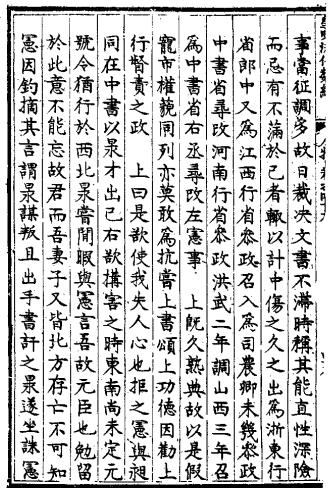 事當征調多故日裁決文書不滯時稱其能直性深險
而忌有不滿於己者輒以計中傷之久之出爲浙東行
省郎中又爲江西行省參政召入爲司農卿未幾參政
中書省尋改河南行省參政洪武二年調山西三年召
爲中書省右丞尋改左憲事　上既久熟典故以是假
寵市權藐同列亦莫敢爲抗嘗上書頌上功德因勸上
行督責之政　上曰是欲使我失人心也拒之憲與昶
同在中書以杲才出己右欲搆害之時東南尚未定元
號令猶行於西北杲嘗閒暇與憲言吾故元臣也勉留
於此意不能忘故君而吾妻子又皆北方存亡不可知
憲因鈎摘其言謂杲謀叛且出手書訐之杲遂坐誅憲